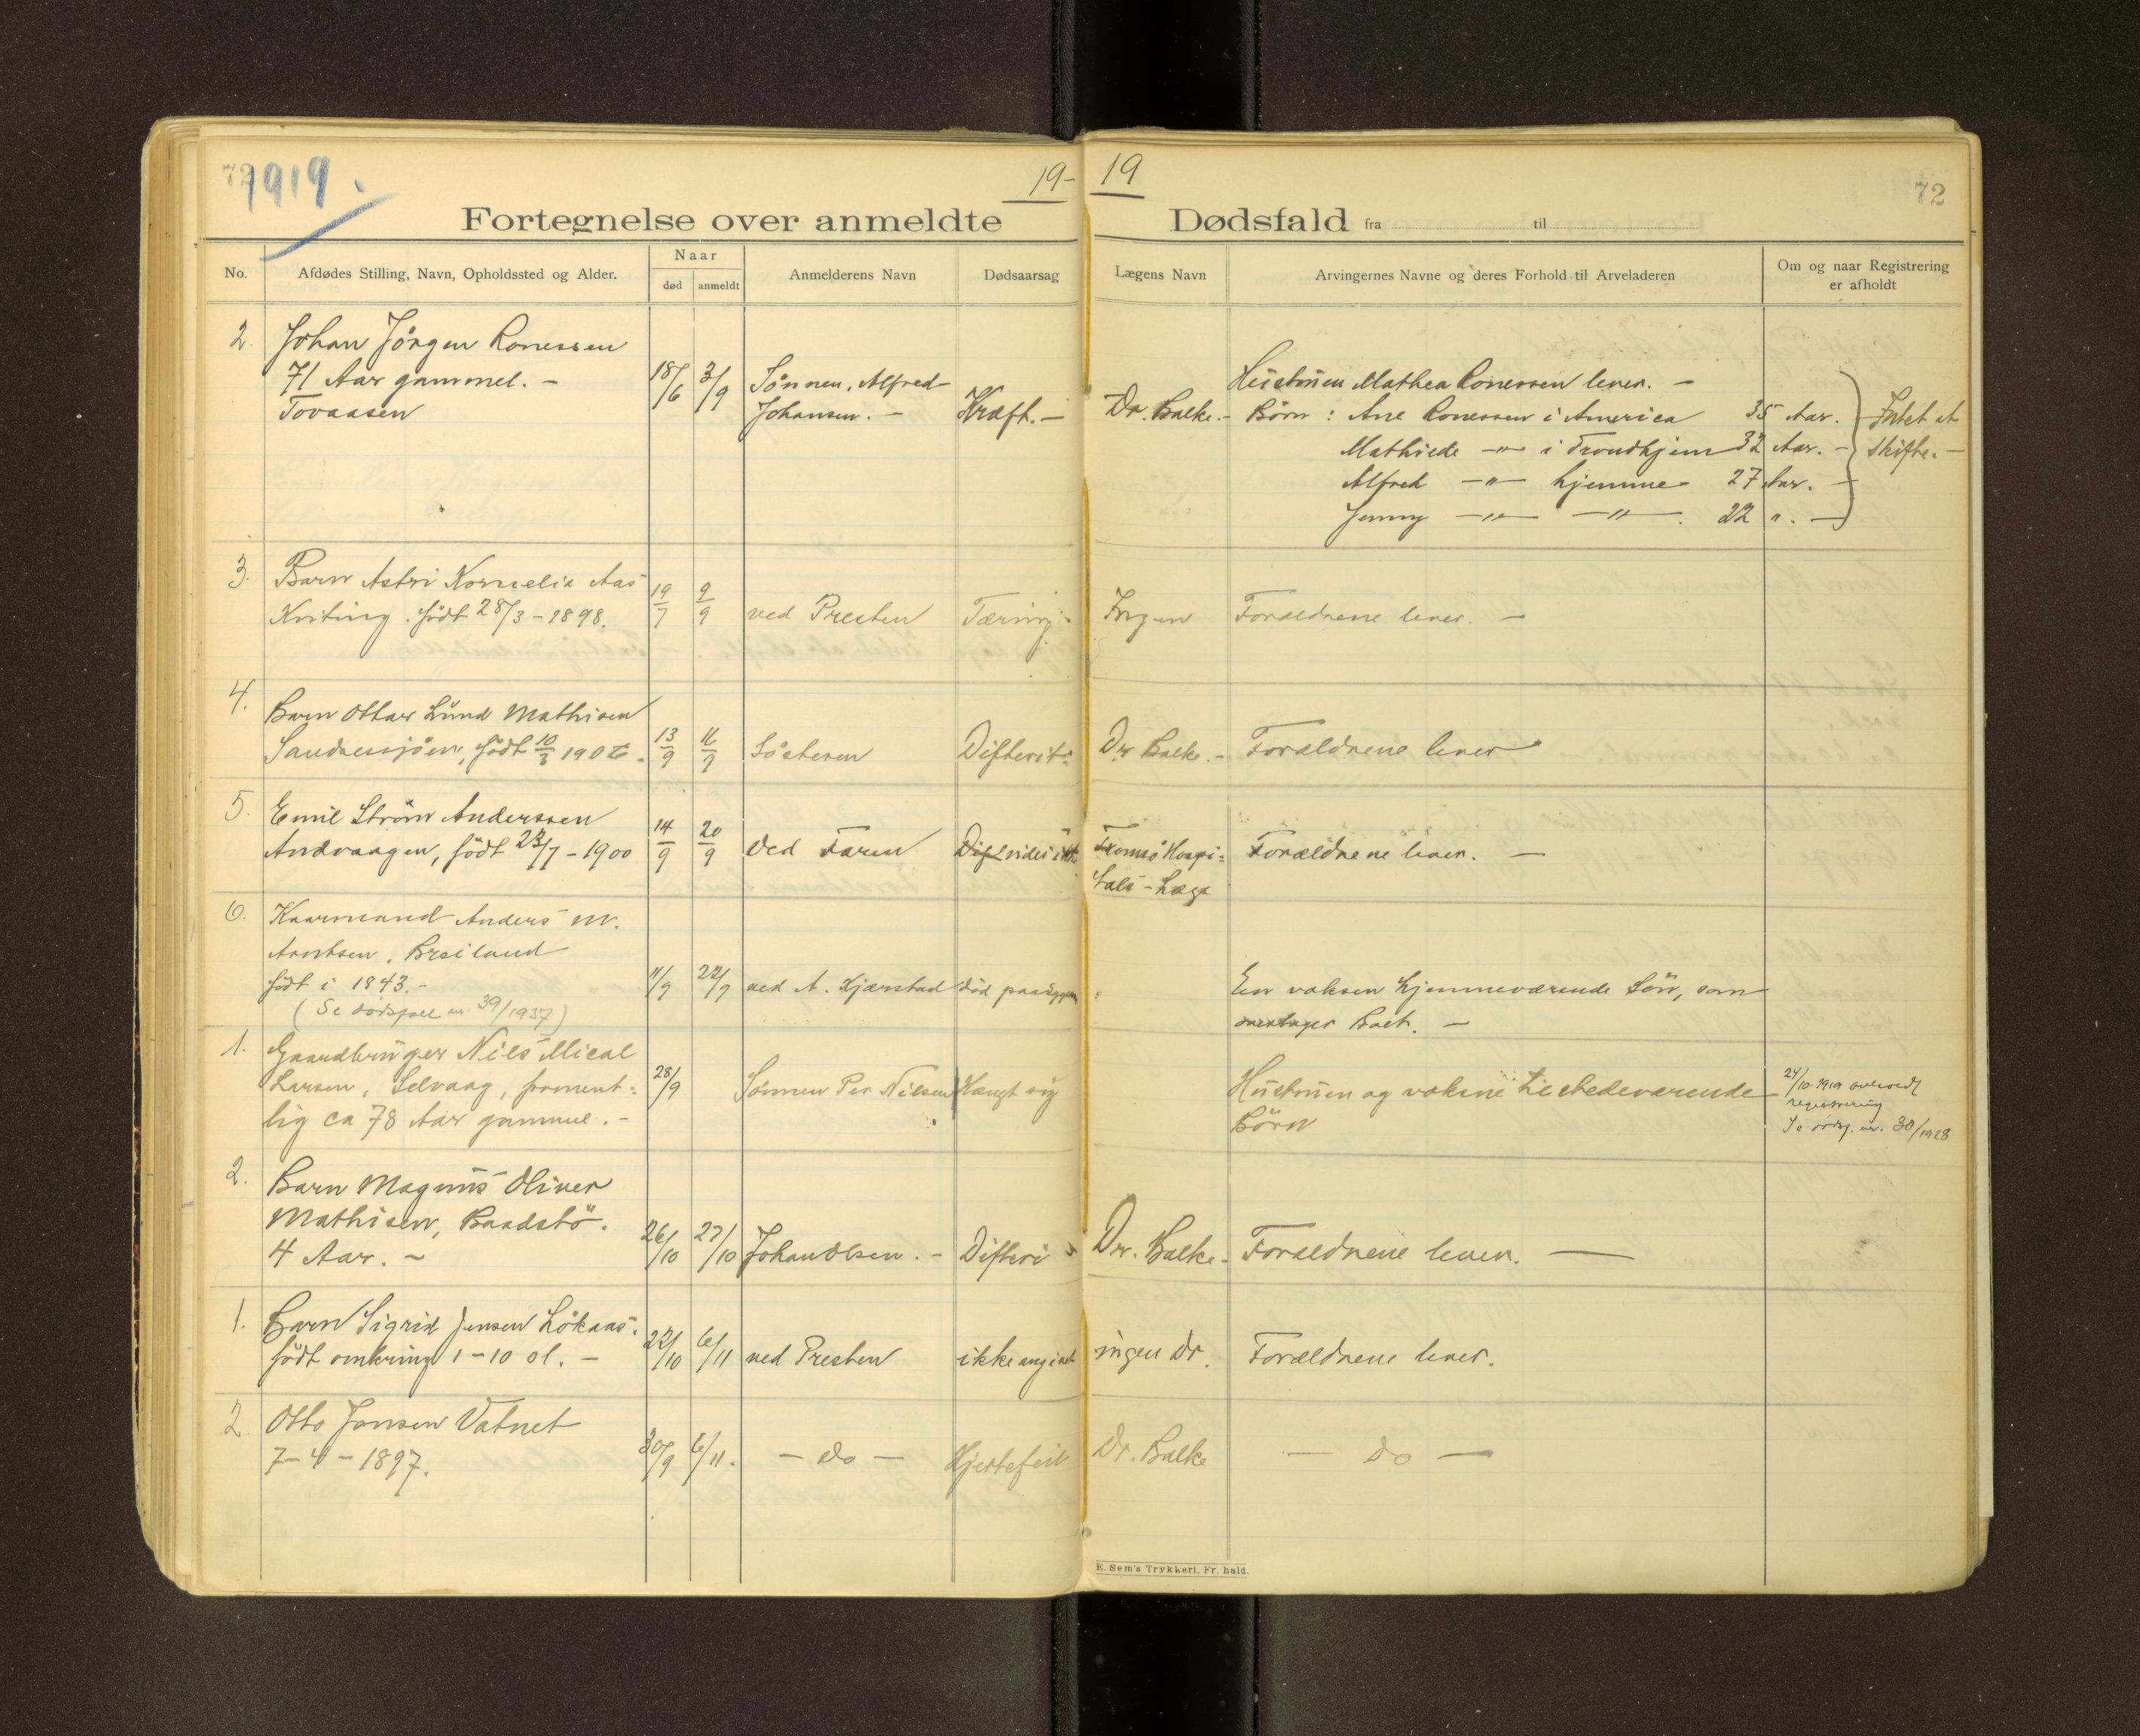 72
1919.
19-
19
72
Fortegnelse over anmeldte
Dødsfald fra til
No.
Afdødes Stilling, Navn, Opholdssted og Alder.
Naar
død
anmeldt
Anmelderens Navn
Dødsaarsag
Lægens Navn
Arvingernes Navne og deres Forhold til Arveladeren
Om og naar Registrering
er afholdt
2. Johan Jörgen Ronessen
71 Aar gammel. - 18/6 3/9 Sönnen, Alfred Hustruen Mathea Ronessen lever. -
Tovaasen Johansen. - Kræft. - Dr. Balke. - Börn: Ane Ronessen i America 35 Aar. Intet at
Mathilde -"- i Trondhjem 32 Aar. - skifte. -
Alfred -"- hjemme 27 Aar. -
Jenny -"- -"-. 22 ". -
3. Barn Astri Kornelia Aas
födt 28/3 - 1898. 19/7 9/9 ved Presten Tæring. Ingen Forældrene lever. -
4. Barn Ottar Lund Mathisen
Sandnessjöen, födt 10/3 190 13/9 16/9 Sösteren Difterit Dr Balke. - Forældrene lever
5. Emil Ström Anderssen
Andvaagen, födt 23/7 - 1900 14/9 20/9 Ved Faren Tromsö Hospi= Forældrene lever. -
tals - Læge
6. Kaarmand Anders M.
Arntsen, Breiland
födt i 1843. - 11/9 22/9 ved A. Kjærstad död paa En voksen hjemmeværende Sön, som
(Se dödsfall nr. 39/1937) Boet. -
1. Gaardbruger Nils Mical
Larsen, Selvaag, forment= 28/9 Sönnen Per Nilsen Hængt sig Hustruen og voksne tilstedeværende 24/10 1919 avholdt
registrering
lig ca 78 Aar gammel. - Börn Se dödsf. nr. 30/1928
2. Barn Magnus Oliver
Mathisen, Baadstö.
4 Aar. - 26/10 27/10 Johan Olsen. - Difteri Dr. Balke - Forældrene lever. -
1. Barn Sigrid Jensen Lökaas.
födt omkring 1-10 d. - 22/10 6/11 ved Presten ikke angivet ingen Dr. Forældrene lever.
2 Otto Jansen Vatnet
7-4-1897. 30/9 6/11. - do - Hjertefeil Dr. Balke - do -
E. Sem's Trykkeri, Fr. hald.